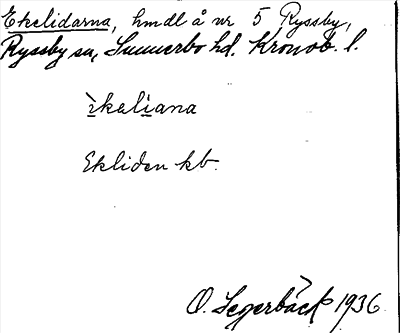 Ekelidarna, hmdl å nr 5 Ryssby,
Ryssby sn, Sunnerbo hd. Kronob. l.
ìkeliana
Ekliden kb.
O. Segerbäck 1936